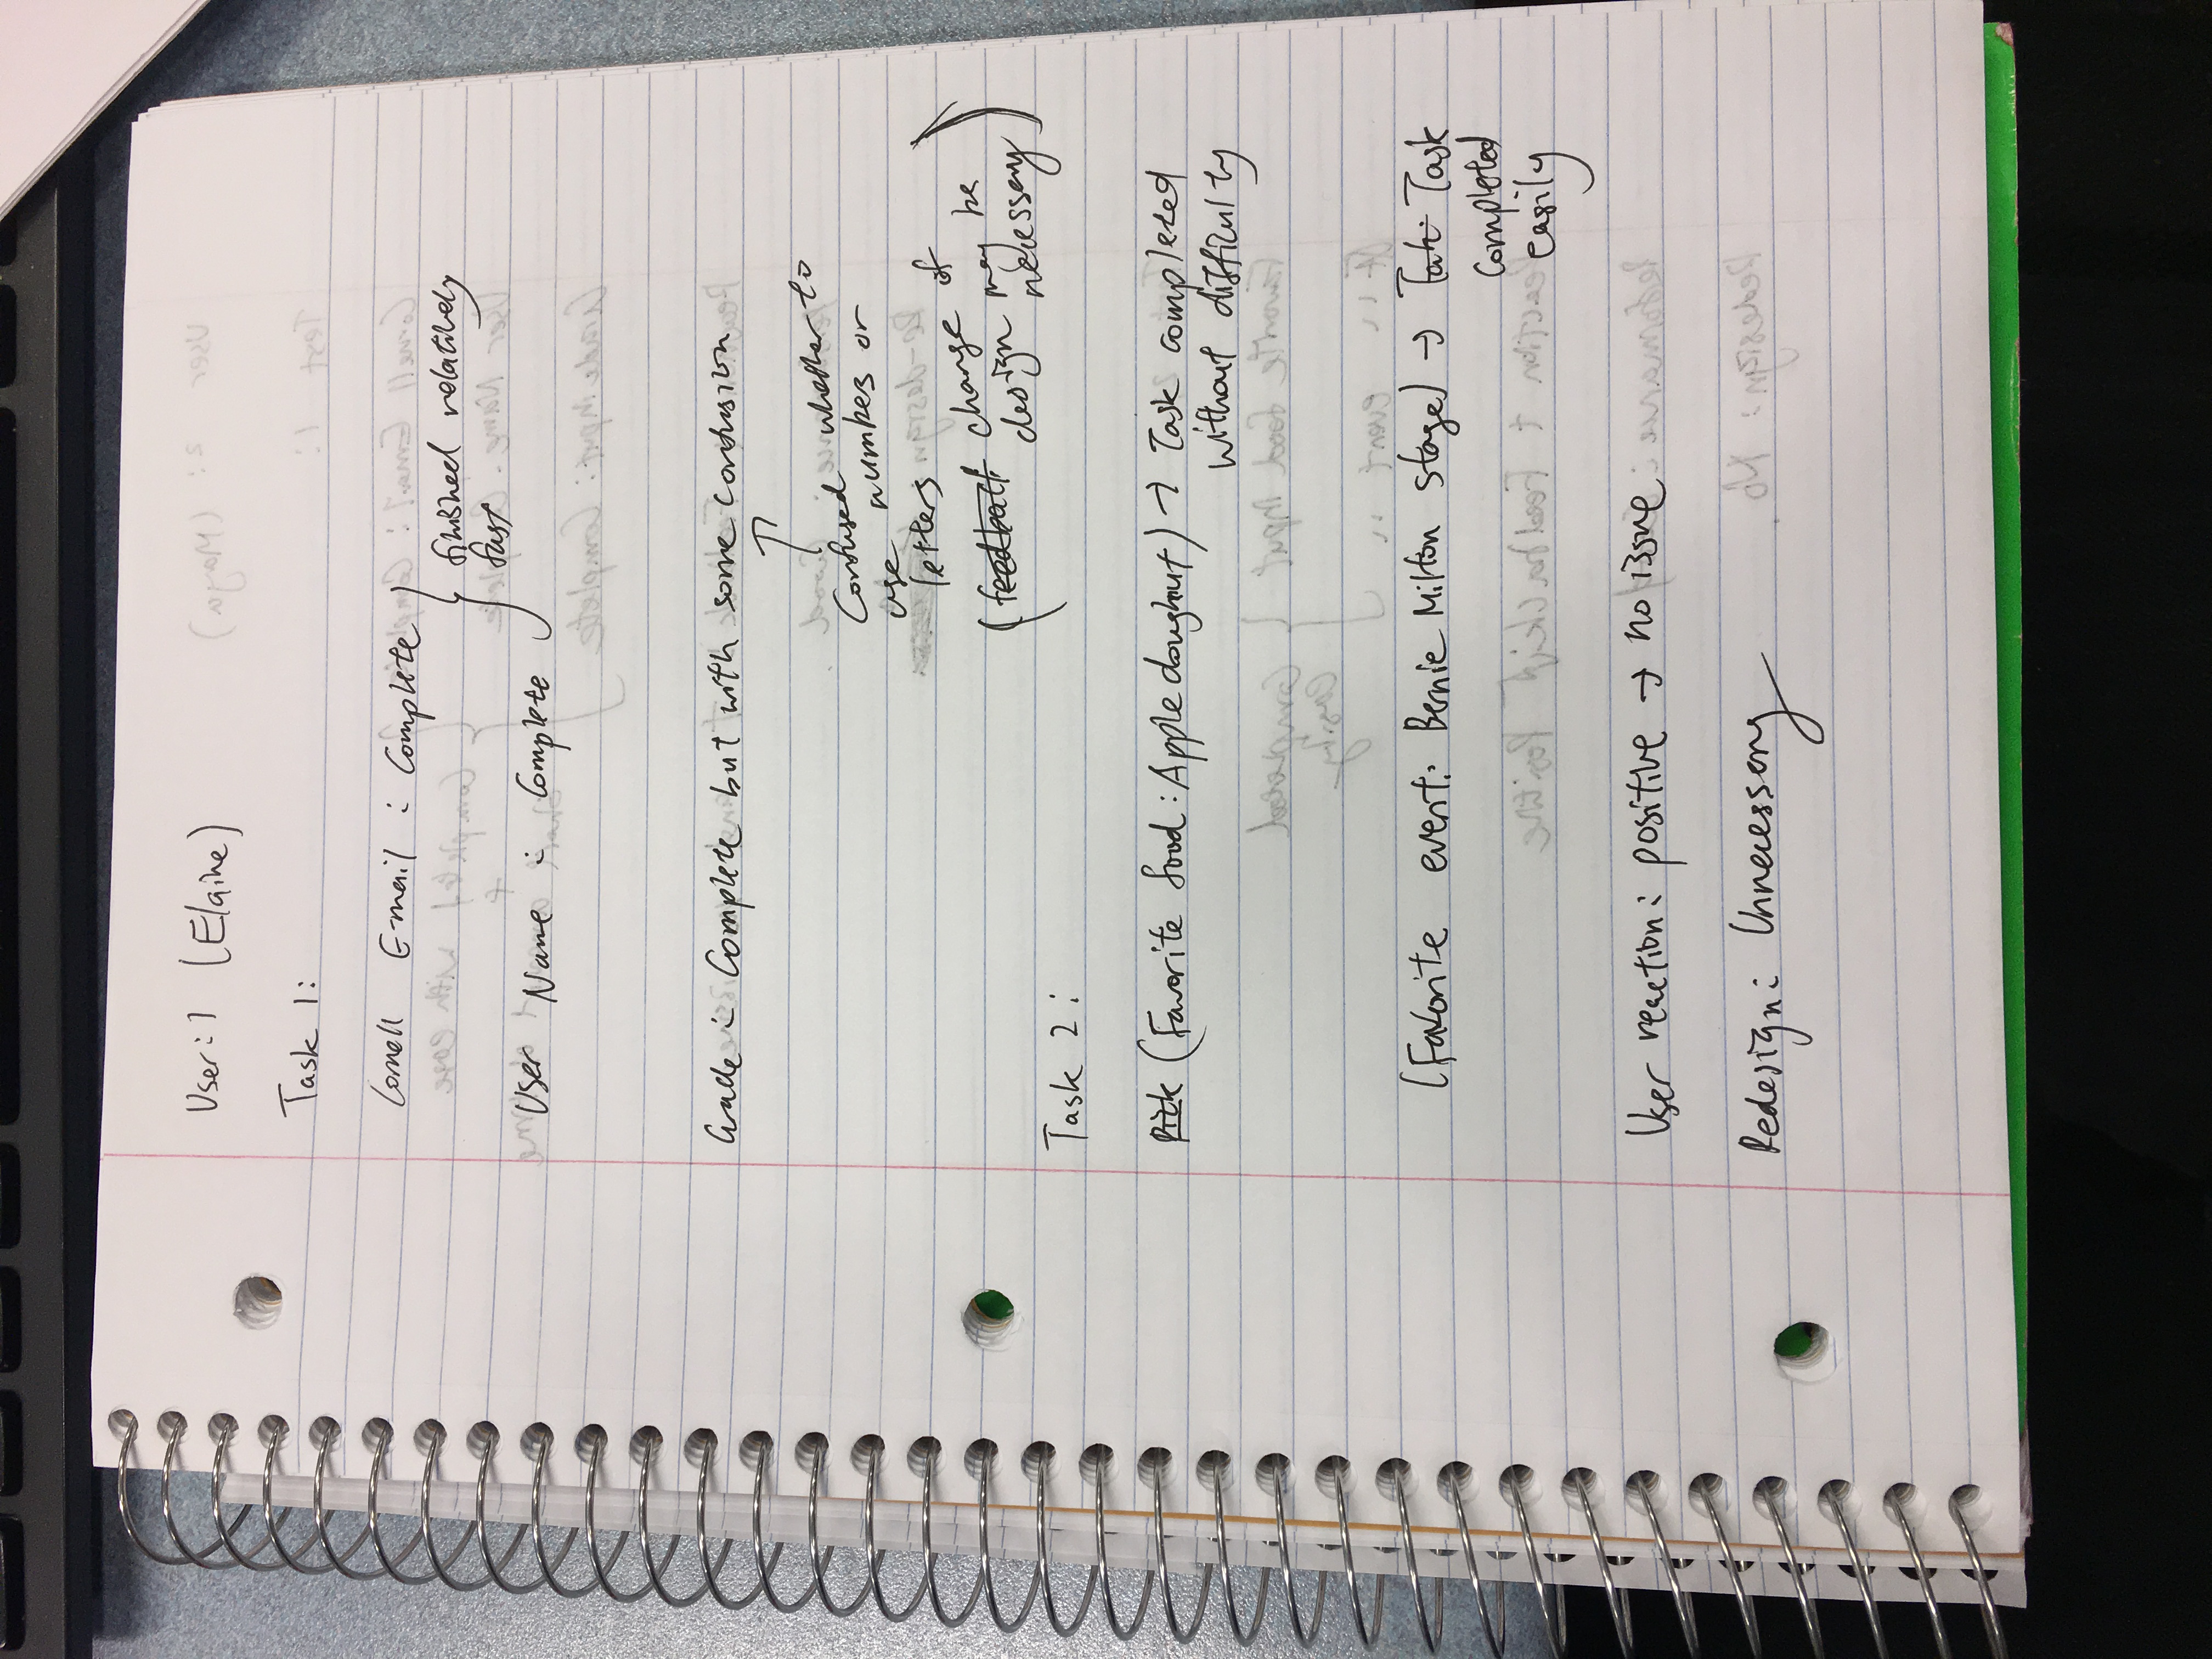 User: 1 (Elaine)
Task 1:
Cornell E-mail : Complete
finished relatively
fast
User Name : Complete
Grade : Complete but with some confusion
Confused whether to
use numbers or
letters
(feedback change of
design may be
necessary)
Task 2 :
Pick (Favorite food : Apple doughnut) → Task completed
without difficulty
(Favorite event: Bernie Milton Stage) → Task
completed
easily
User reaction : positive → no issue
Redesign : Unnecessary